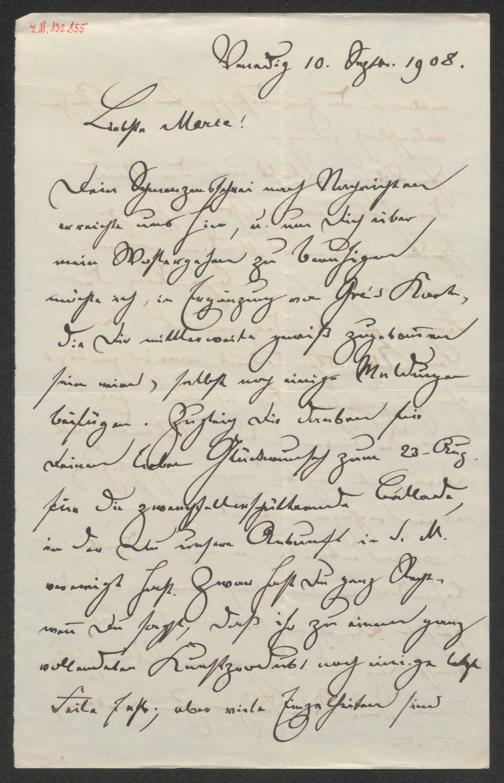 I.N. 132.855
Venedig 10. Septr. 1908.
Liebste Marie!
Dein Schmerzensschrei nach Nachrichten
erreichte uns hier, u. um Dich über
mein Wohlergehen zu beruhigen
möchte ich, in Ergänzung von Karte,
die Dir mittlerweile gewiß zugekommen
sein wird, selbst noch einige Meldungen
beifügen. Zugleich Dir danken für
Deinen lieben Glückwunsch zum 23. Aug.
für die zwerchfellerschütternde Ballade,
in der Du unsere Ankunft in S. M.
verewigt hast. Zwar hast Du ganz Recht,
wenn Du sagst, daß ihr zu einem ganz
vollendeten Kunstproduct noch einige letzte
Feile fehle, aber viele Einzelheiten sind